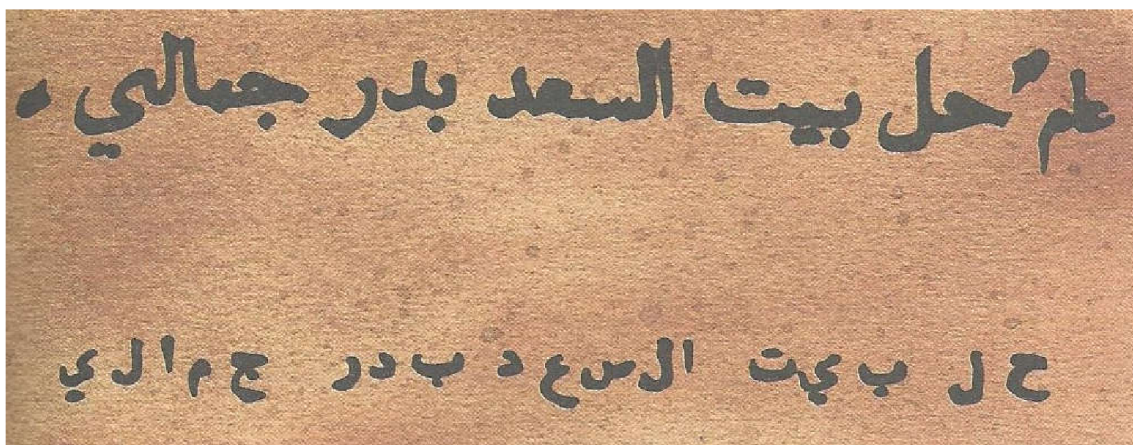 علم حل بيت السعد بدر جمالي ه
ح ل ب ي ت ا ل س ع د ب د ر ج م ا ل ي